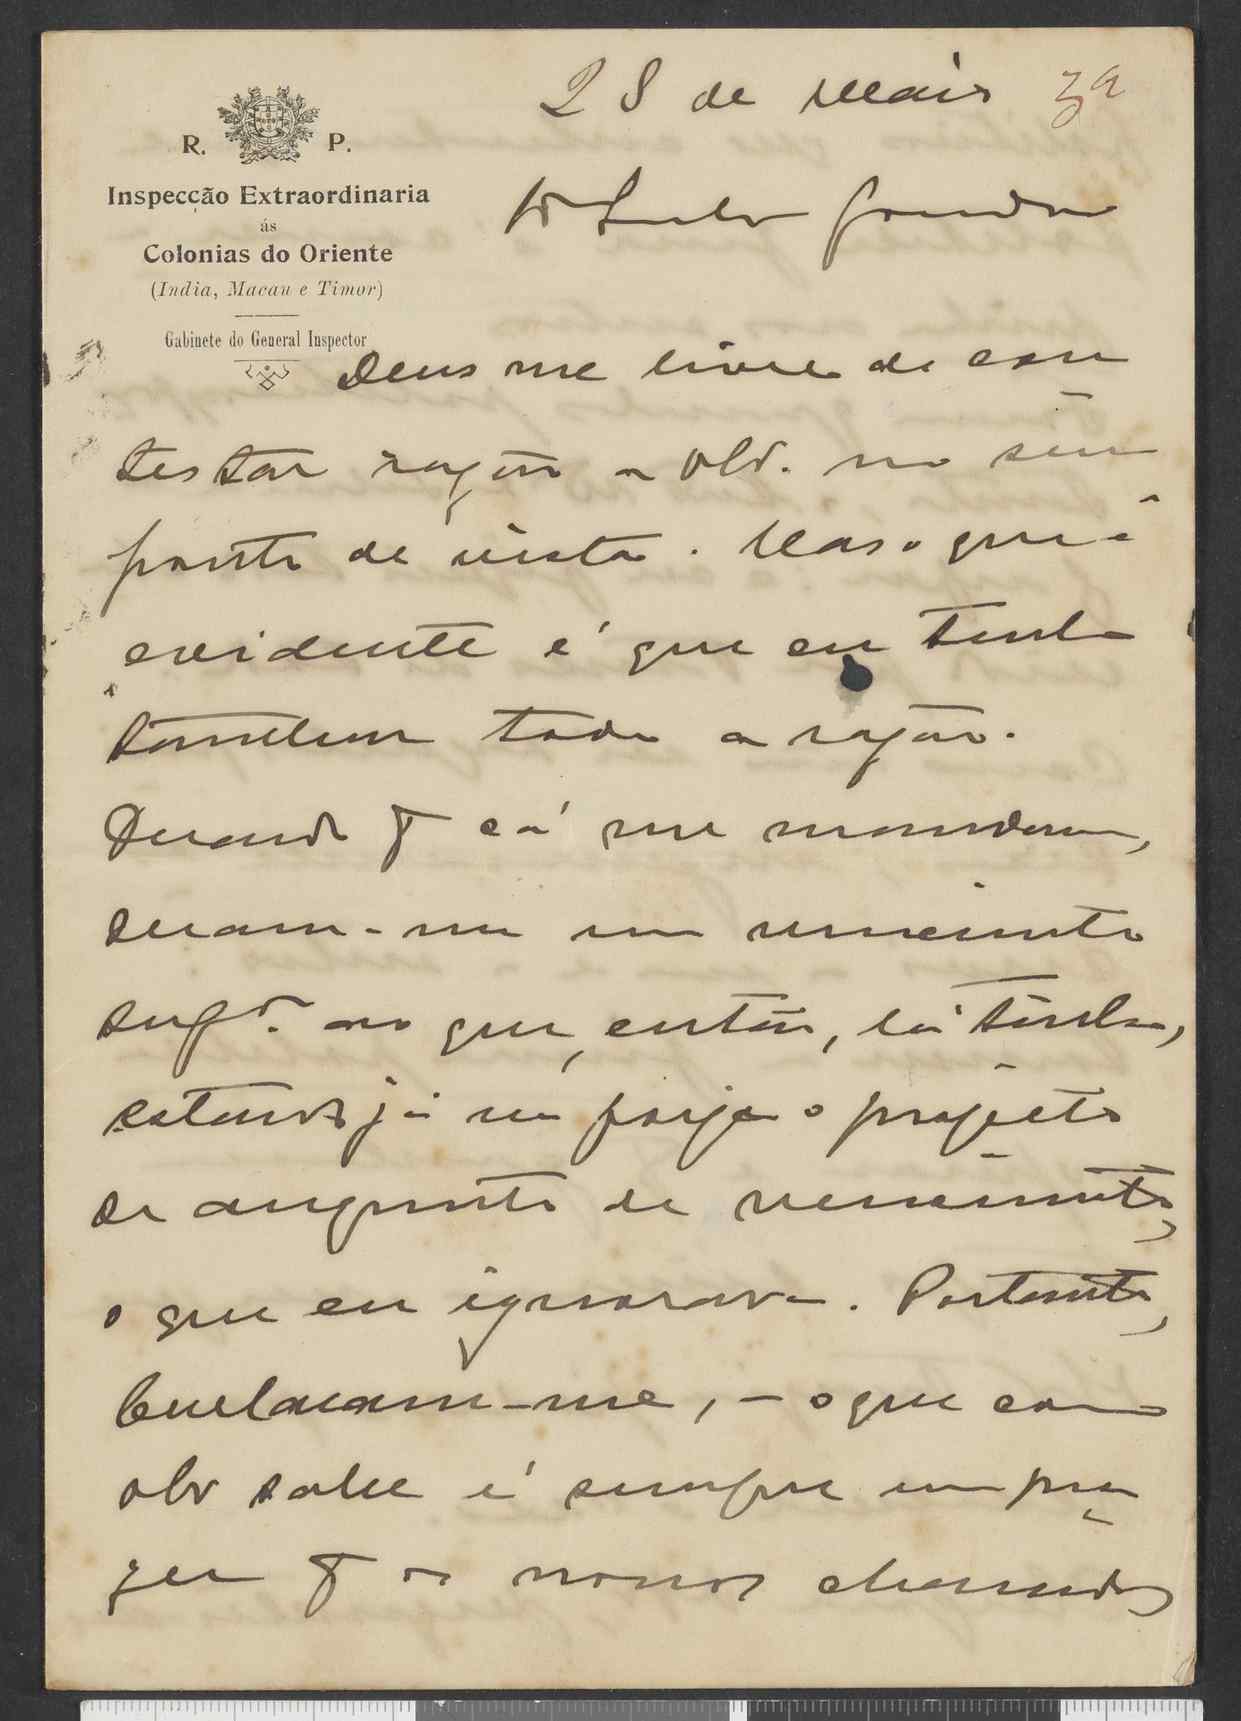 28 de Maio 3ª
R. P.
Inspecção Extraordinaria
ás
Colonias do Oriente
(India, Macau e Timor)
Gabinete do General Inspector
Deus me livre de con
testar razão a V. no seu
ponto de vista. Mas o que é
evidente é que eu tenho
tambem toda a razão.
Quando pª cá me mandaram,
deram-me um vencimento
supor. ao que, então, lá tinha,
estando já na forja o projecto
de augmento de vencimento,
o que eu ignorava. Portanto,
-me, — o que como
sabe é sempre um pra
zer pª os nossos chamados